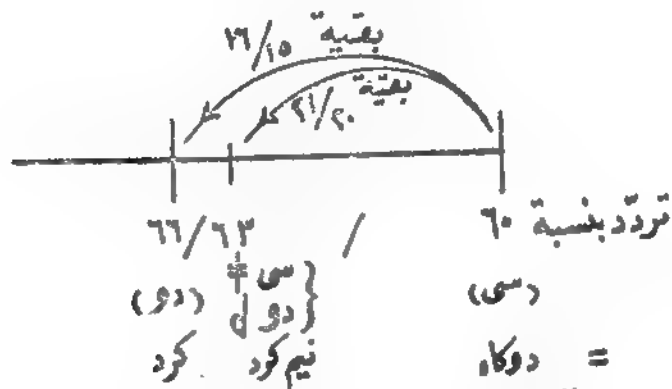 بقية ٢٦/١٥
بقية ٢١/٢٠
تردّد بنسبة ٦٠ / ٦٦/٦٣
(سى) { سى ‡ (دو)
{ دو
= دوكاه نيم كرد كرد